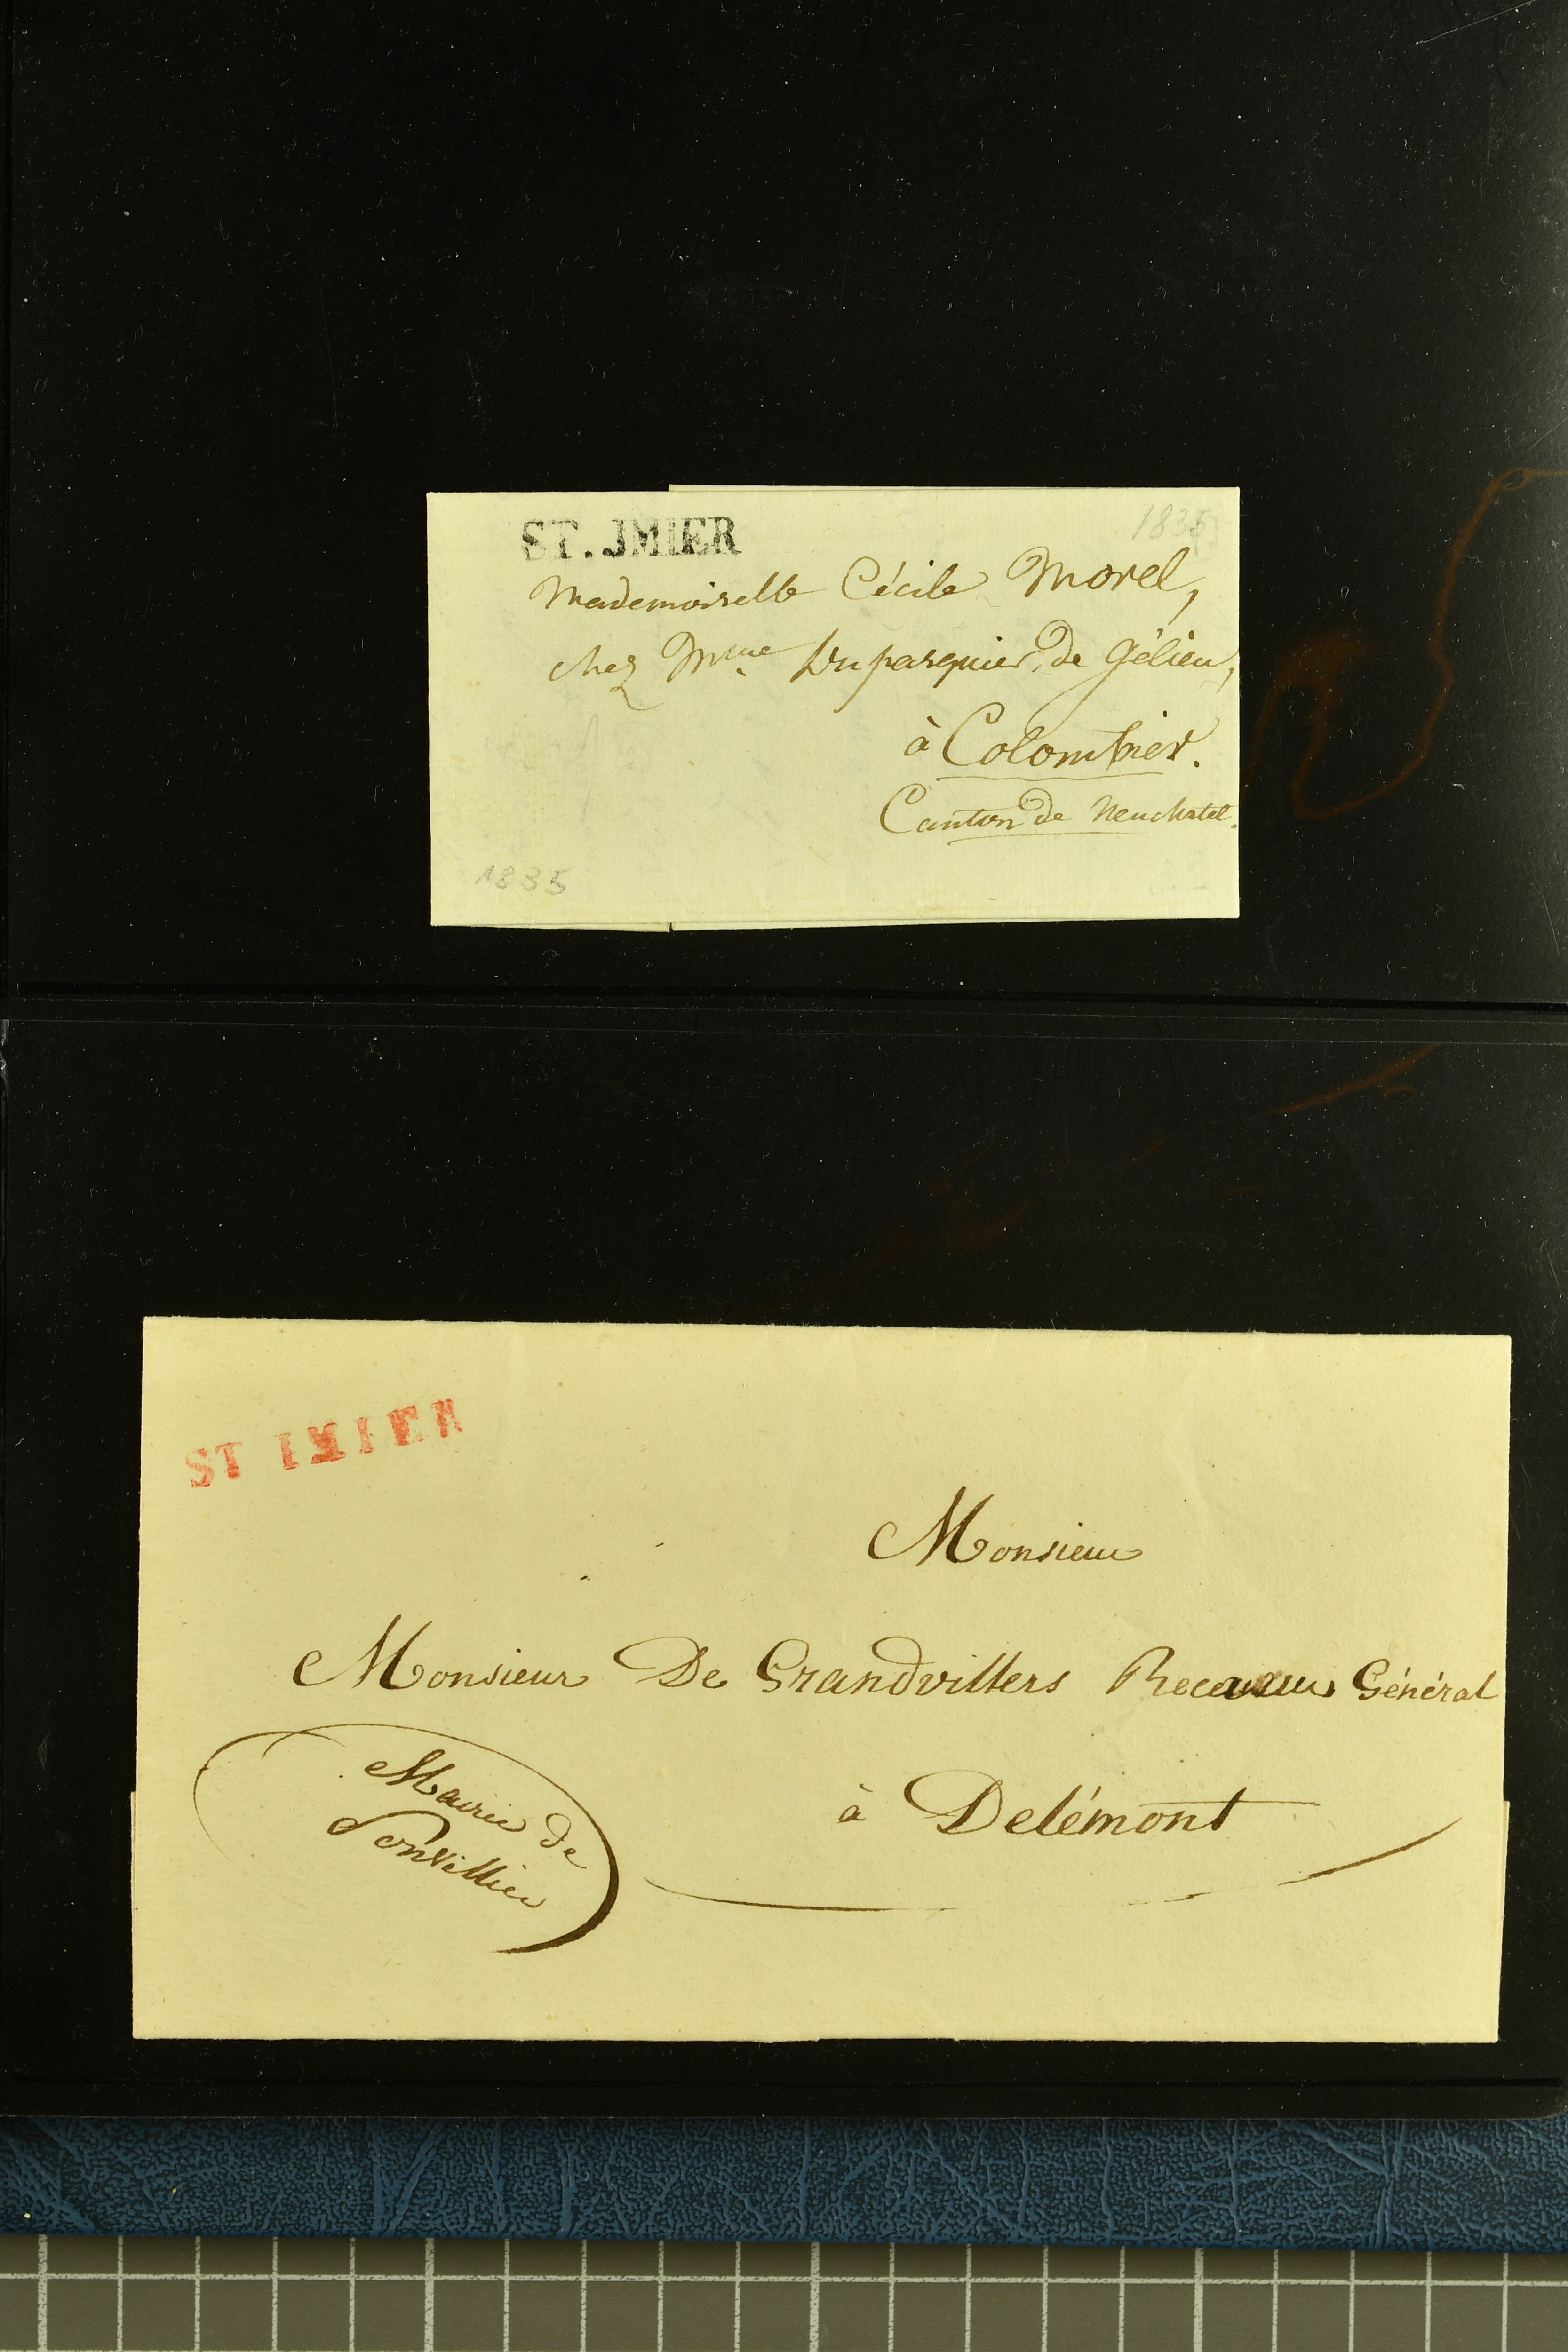 ST. JMIER
1835
Mademoiselle Cécile Morel,
chez Mme Dupasquier, de Gélieu,
à Colombier.
Canton de Neuchatel.
1835
ST IMIER
Monsieur
Monsieur De Grandvillers Receveur Général
Mairie de
Sonvillier
à Delémont